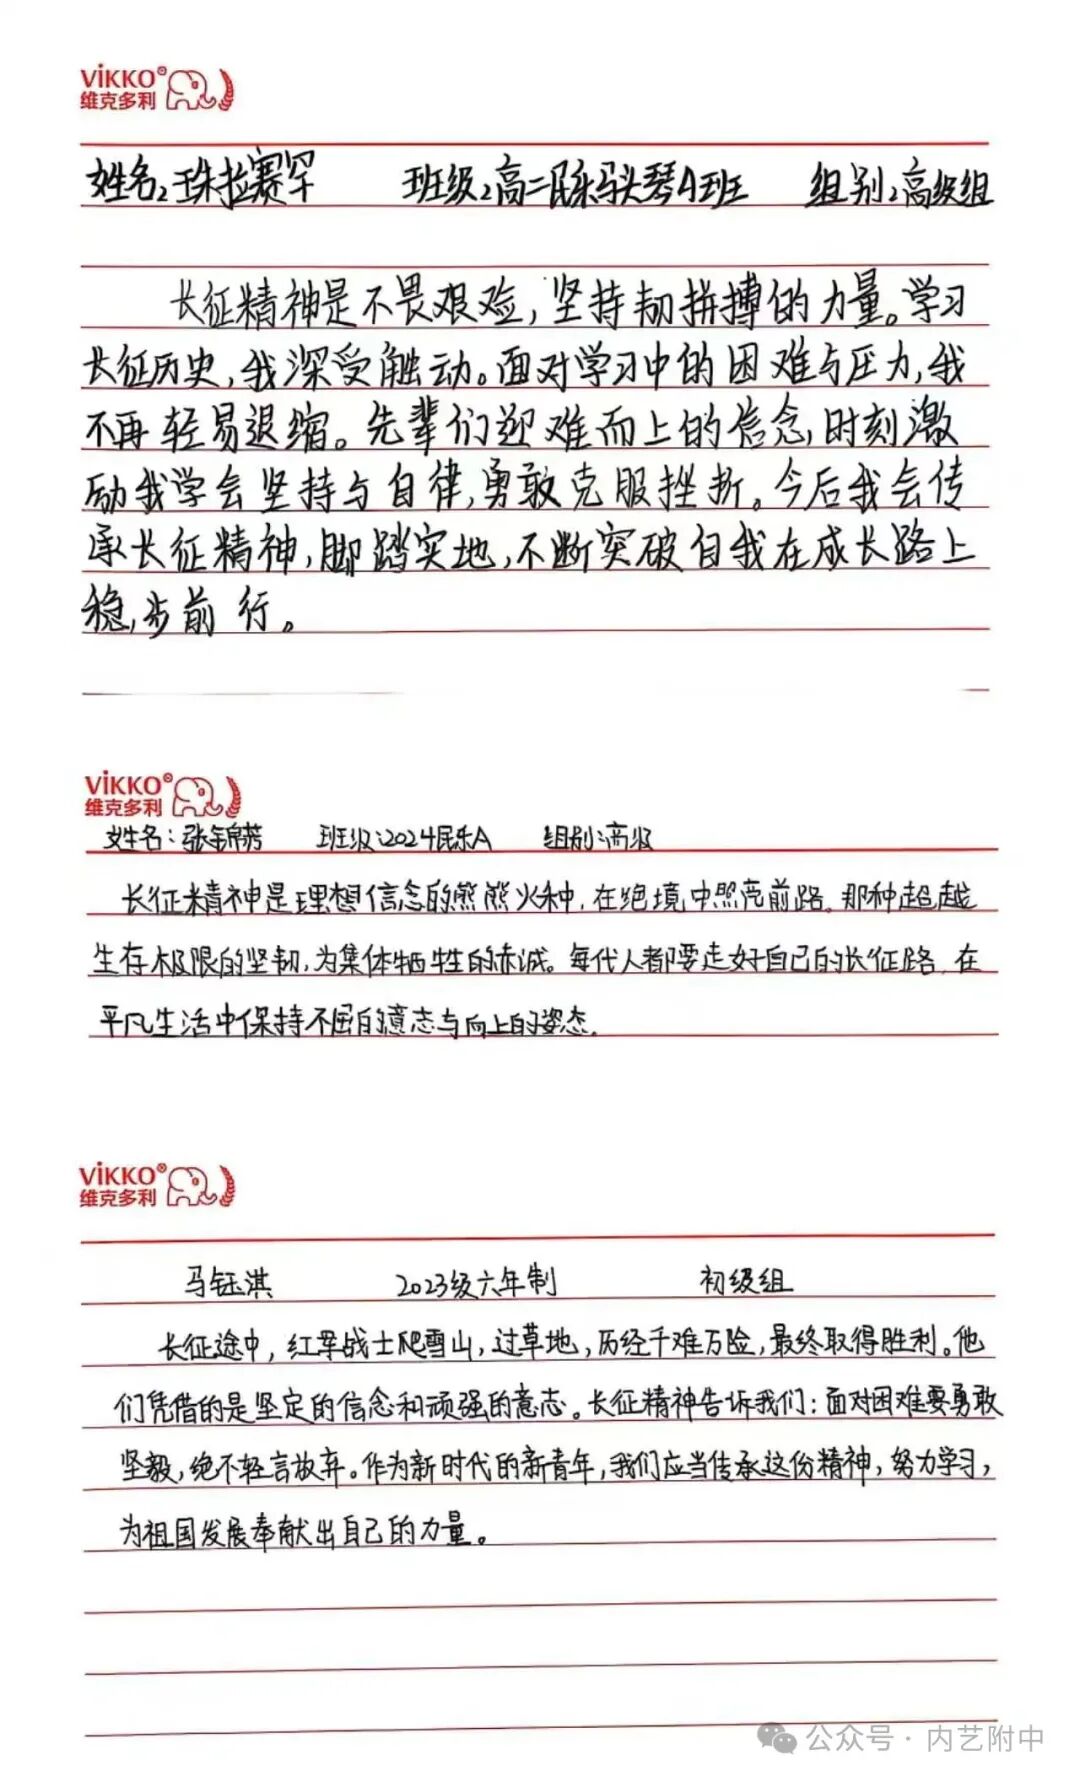 VIKKO®
维克多利
姓名:珠拉赛罕 班级:高二民乐马头琴A班 组别:高级组
长征精神是不畏艰险,坚持韧拼搏的力量。学习
长征历史,我深受触动。面对学习中的困难与压力,我
不再轻易退缩。先辈们迎难而上的信念,时刻激
励我学会坚持与自律,勇敢克服挫折。今后我会传
承长征精神,脚踏实地,不断突破自我在成长路上
稳步前行。
VIKKO®
维克多利
姓名:张锦芳 班级:2024民乐A 组别:高级
长征精神是理想信念的熊熊火种,在绝境中照亮前路。那种超越
生存极限的坚韧,为集体牺牲的赤诚。每代人都要走好自己的长征路,在
平凡生活中保持不屈的意志与向上的姿态.
VIKKO®
维克多利
马钰淇 2023级六年制 初级组
长征途中,红军战士爬雪山,过草地,历经千难万险,最终取得胜利。他
们凭借的是坚定的信念和顽强的意志。长征精神告诉我们:面对困难要勇敢
坚毅,绝不轻言放弃。作为新时代的新青年,我们应当传承这份精神,努力学习,
为祖国发展奉献出自己的力量。
公众号·内艺附中